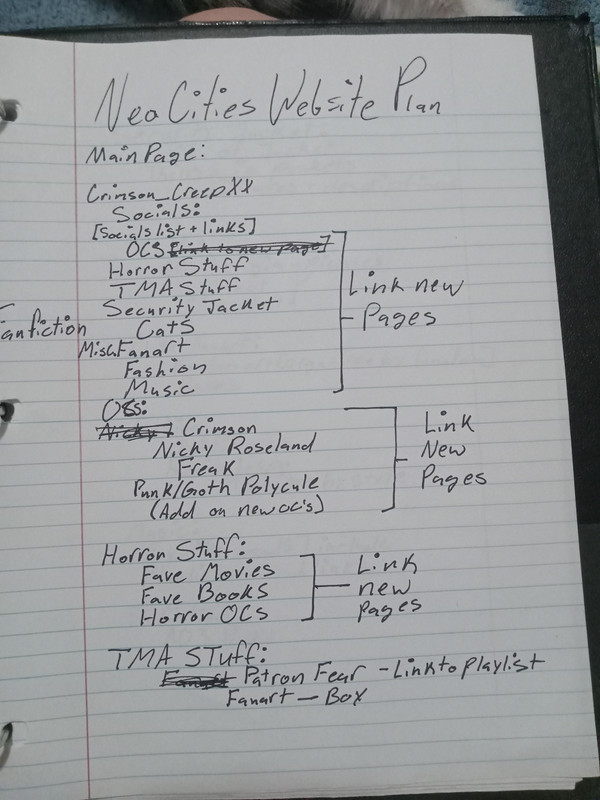 NeoCities Website Plan
Main Page:
Crimson_CreepXX
Socials:
[Socials list + links]
OCS [Link to new page]
Horror Stuff
TMA Stuff
Security Jacket
Fanfiction Cats
Misc Fanart
Fashion
Music
Link new
Pages
OCs:
Nicky Crimson
Nicky Roseland
Freak
Punk/Goth Polycule
(Add on new OC's)
Link
New
Pages
Horror Stuff:
Fave Movies
Fave Books
Horror OCs
Link
new
pages
TMA Stuff:
Fanart Patron Fear - Link to playlist
Fanart - Box